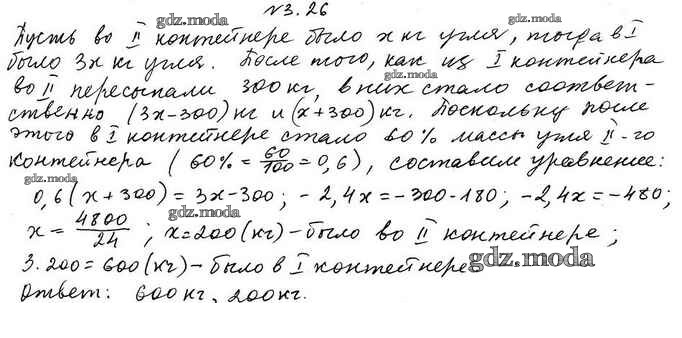 №3.26
gdz.moda
Пусть во II контейнере было x кг угля, тогда в I
было 3x кг угля. После того, как из I контейнера
gdz.moda
во II пересыпали 300 кг, в них стало соответ-
ственно (3x-300) кг и (x+300) кг. Поскольку после
gdz.moda
этого в I контейнере стало 60% массы угля II-го
контейнера (60% = 60/100 = 0,6), составим уравнение:
gdz.moda
0,6(x+300) = 3x-300; -2,4x = -300-180; -2,4x = -480;
gdz.moda
x = 4800/24; x = 200 (кг) - было во II контейнере;
3.200 = 600 (кг) - было в I контейнере
gdz.moda
Ответ: 600 кг, 200 кг.